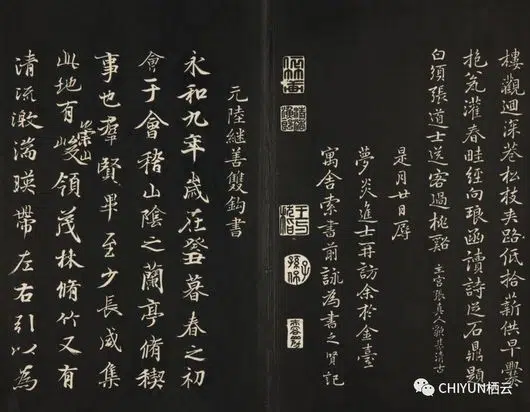 樓觀迴深巷松枝夾路低拾薪供早爨
抱瓮灌春畦經向琅函讀詩從石鼎題
白須張道士送客過桃谿
是月廿日辱
夢炎進士再訪余於金臺
寓舍索書前詠為書之賢記
元陸繼善雙鈎書
永和九年歲在癸丑暮春之初
會于會稽山陰之蘭亭脩禊
事也羣賢畢至少長咸集
此地有崇山峻領茂林脩竹又有
清流激湍暎帶左右引以為
CHIYUN栖云